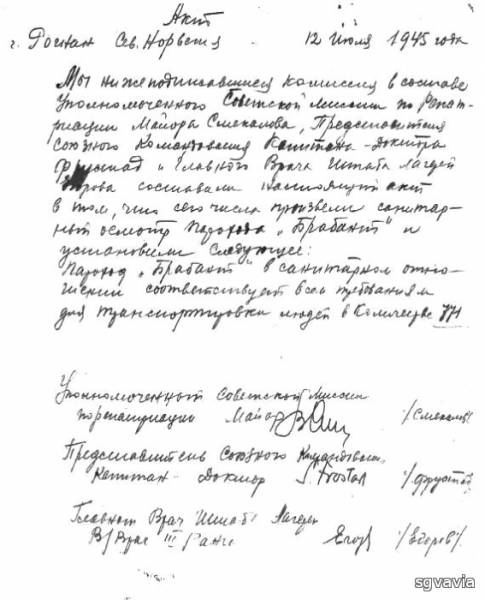 Акт
г. Росман Сев. Норвегия 12 июля 1945 года
Мы нижеподписавшиеся комиссия в составе
Уполномоченного Советской Миссии по Репат-
риации Майора Смекалова, Представителя
Союзного Командования Капитана-Доктора
Фрустад и Главного Врача Штаба Лагерей
составили настоящий акт
в том, что сего числа произвели санитар-
ный осмотр парохода „Брабант" и
установили следующее:
Пароход „Брабант" в санитарном отно-
шении соответствует всем требованиям
для транспортировки людей в количестве 771
Уполномоченный Советской Миссии
по репатриации Майор /Смекалов/
Представитель Союзного Командован.
Капитан - Доктор /Фрустад/
Главный Врач Штаба Лагерей
В/Врач III Ранга Егор /Егоров/
sgvavia